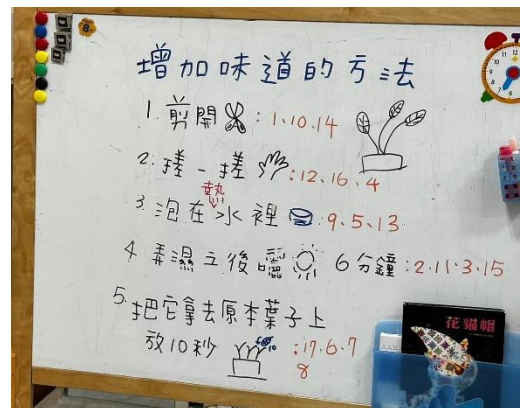 增加味道的方法
1. 剪開：1、10、14
2. 搓一搓：12、16、4
3. 泡在熱水裡 9、5、13
4 弄濕之後曬 6分鐘：2、11、3、15
5. 把它拿去原本葉子上
放10秒：17、6、7
8
花貓帽